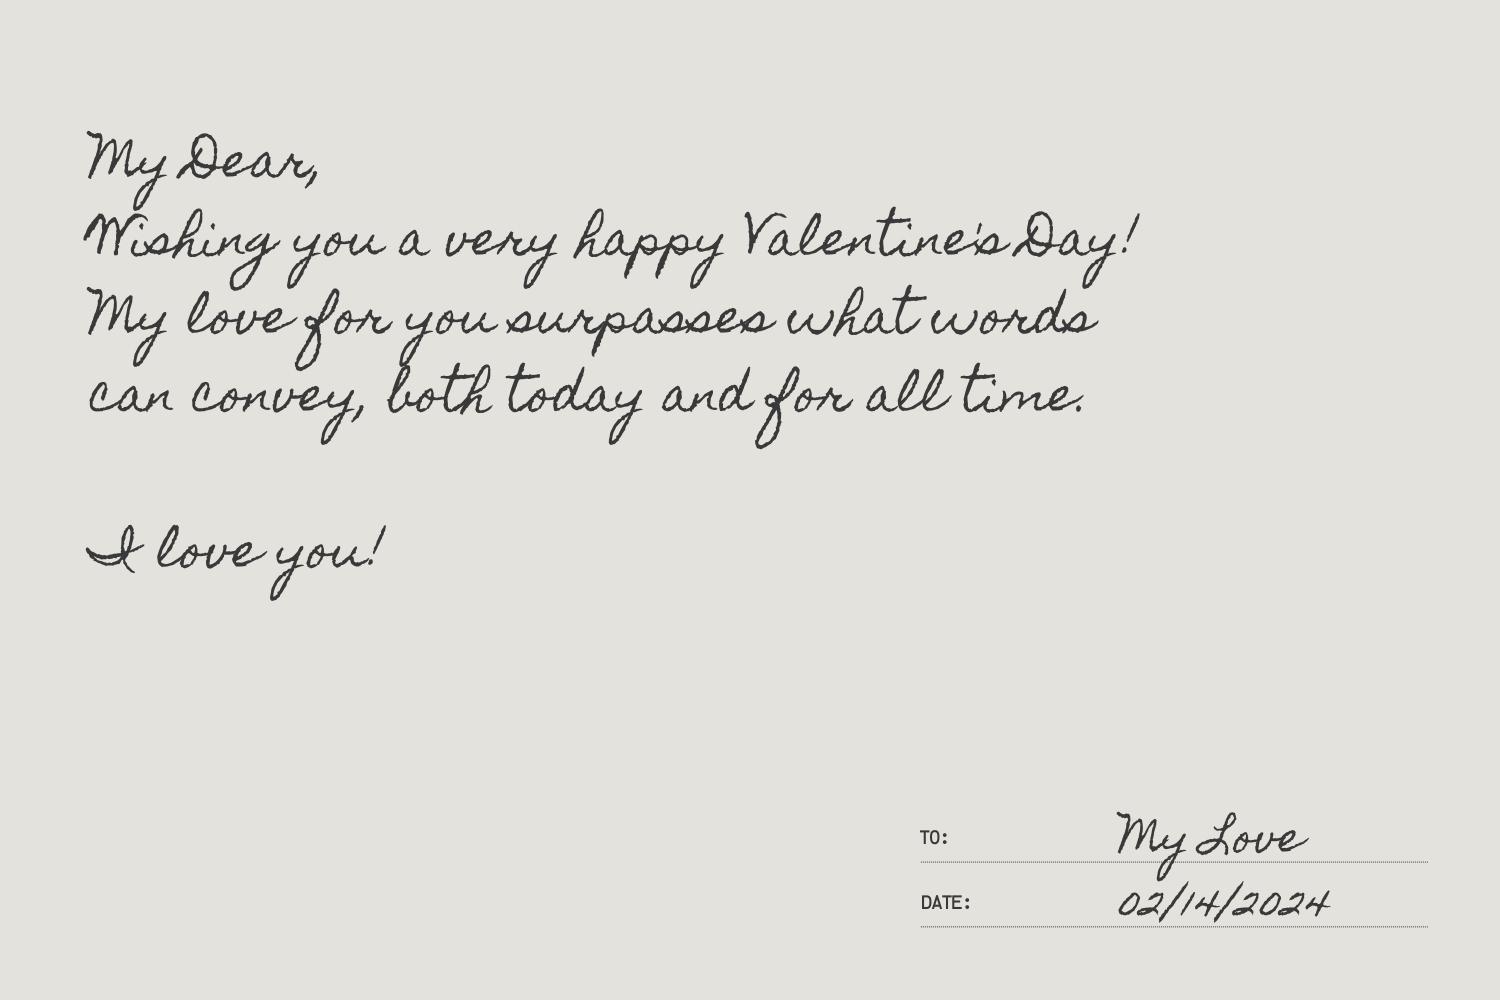 My Dear,
Wishing you a very happy Valentine's Day!
My love for you surpasses what words
can convey, both today and for all time.
I love you!
TO: My Love
DATE: 02/14/2024